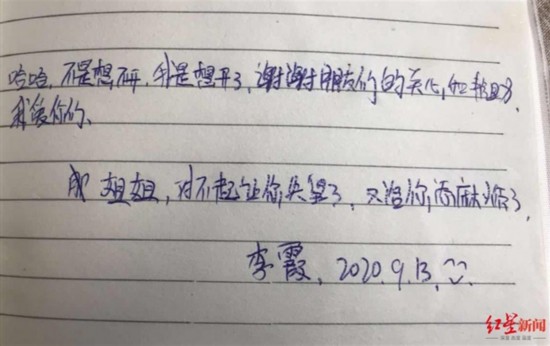 哈哈,不是想不开,我是想开了,谢谢朋友们的关心,和帮助,
我爱你们、
成姐姐,对不起让你失望了,又给你添麻烦了,
李霞、2020.9.13,
红星新闻
深度 态度 温度